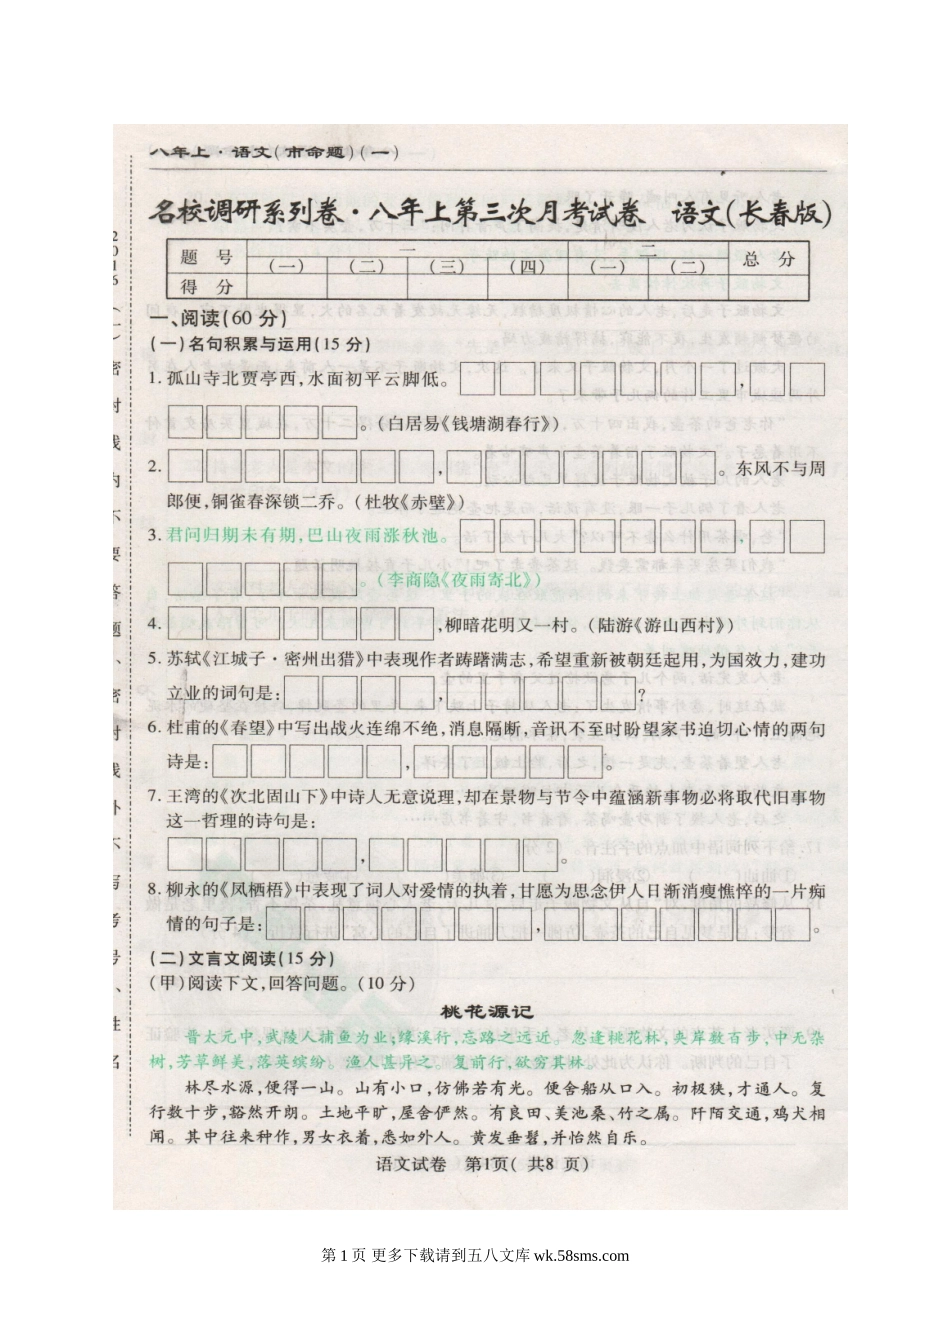 八年上·语文(市命题)(一)
名校调研系列卷·八年上第三次月考试卷 语文(长春版)
题 号 一 二 总 分
(一) (二) (三) (四) (一) (二)
得 分
一、阅读(60分)
(一)名句积累与运用(15分)
1.孤山寺北贾亭西,水面初平云脚低。□□□□□□□,□□
□□□□□。(白居易《钱塘湖春行》)
2.□□□□□□□,□□□□□□□。东风不与周
郎便,铜雀春深锁二乔。(杜牧《赤壁》)
3.君问归期未有期,巴山夜雨涨秋池。□□□□□□□,□□
□□□□□。(李商隐《夜雨寄北》)
4.□□□□□□□,柳暗花明又一村。(陆游《游山西村》)
5.苏轼《江城子·密州出猎》中表现作者踌躇满志,希望重新被朝廷起用,为国效力,建功
立业的词句是:□□□□,□□□□□?
6.杜甫的《春望》中写出战火连绵不绝,消息隔断,音讯不至时盼望家书迫切心情的两句
诗是:□□□□□,□□□□□。
7.王湾的《次北固山下》中诗人无意说理,却在景物与节令中蕴涵新事物必将取代旧事物
这一哲理的诗句是:
□□□□□,□□□□□。
8.柳永的《凤栖梧》中表现了词人对爱情的执着,甘愿为思念伊人日渐消瘦憔悴的一片痴
情的句子是:□□□□□□□,□□□□□□□。
(二)文言文阅读(15分)
(甲)阅读下文,回答问题。(10分)
桃花源记
晋太元中,武陵人捕鱼为业;缘溪行,忘路之远近。忽逢桃花林,夹岸数百步,中无杂
树,芳草鲜美,落英缤纷。渔人甚异之。复前行,欲穷其林。
林尽水源,便得一山。山有小口,仿佛若有光。便舍船从口入。初极狭,才通人。复
行数十步,豁然开朗。土地平旷,屋舍俨然。有良田、美池桑、竹之属。阡陌交通,鸡犬相
闻。其中往来种作,男女衣着,悉如外人。黄发垂髫,并怡然自乐。
语文试卷 第1页( 共8 页)
第 1 页 更多下载请到五八文库 wk.58sms.com